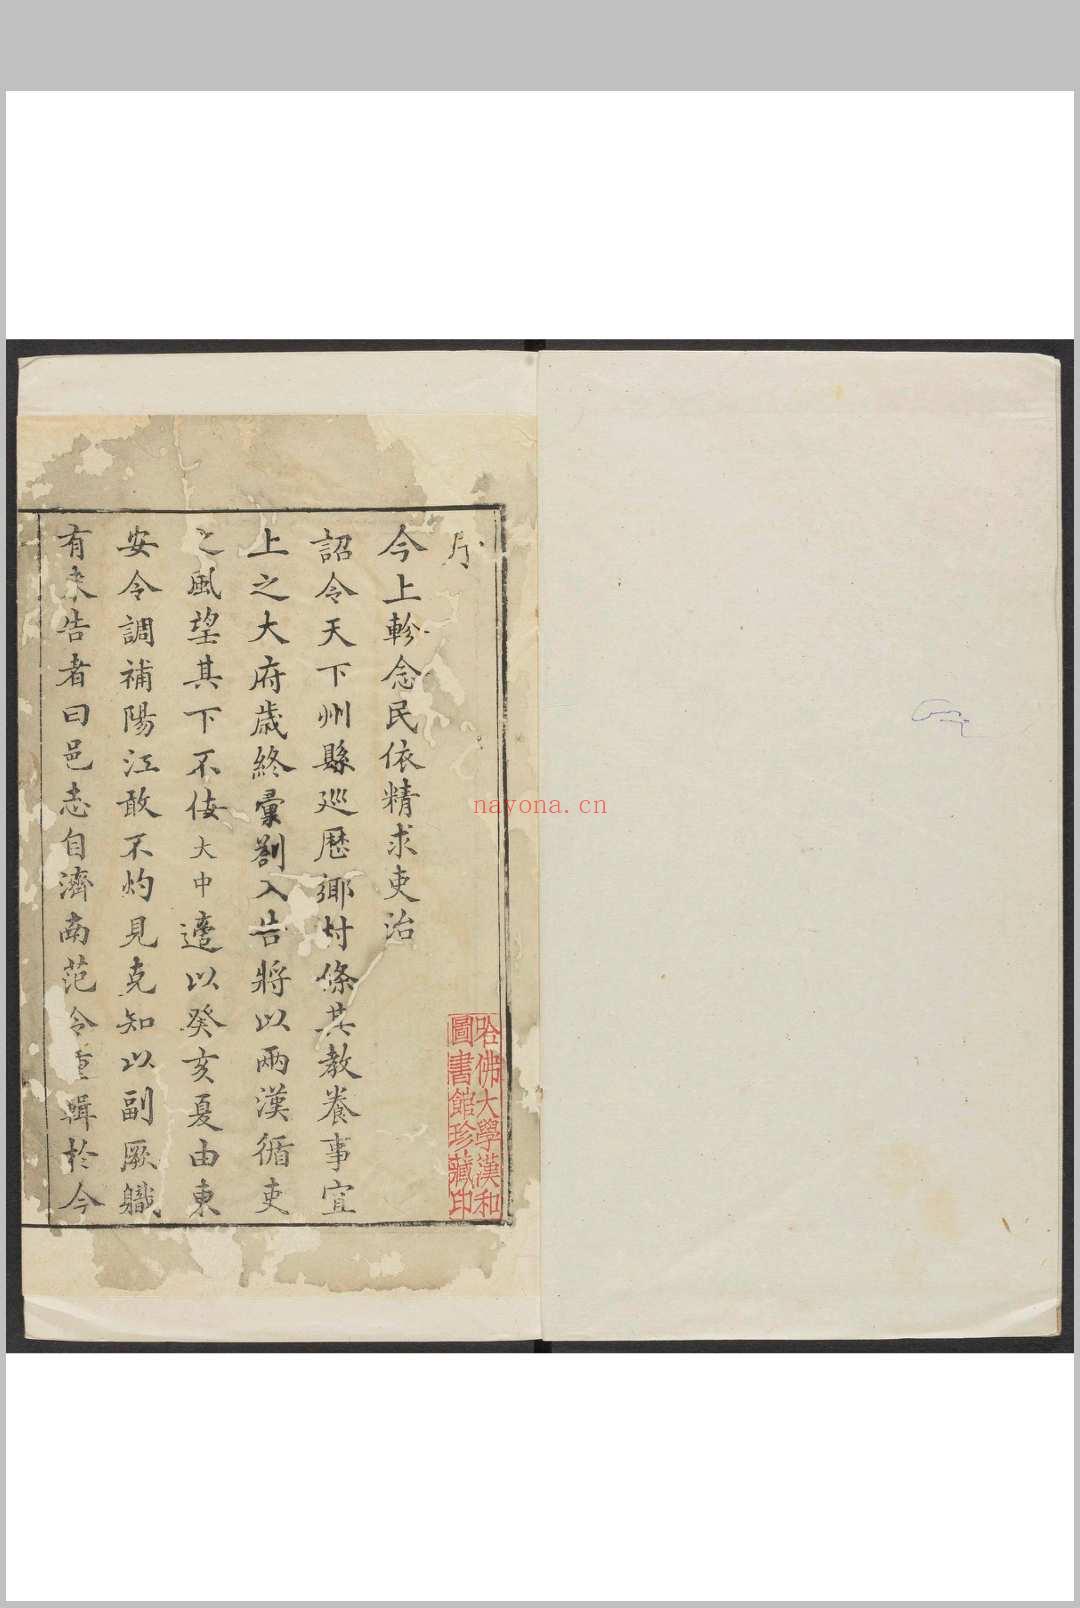 序
今上軫念民依精求吏治
詔令天下州縣廵歷鄉村條其教養事宜
上之大府歲終彙劄入告將以兩漢循吏
之風望其下不佞大中遵以癸亥夏由東
安令調補陽江敢不灼見克知以副厥軄
有來告者曰邑志自濟南范令重輯於今
哈佛大學漢和
圖書館珍藏印
nayona.cn